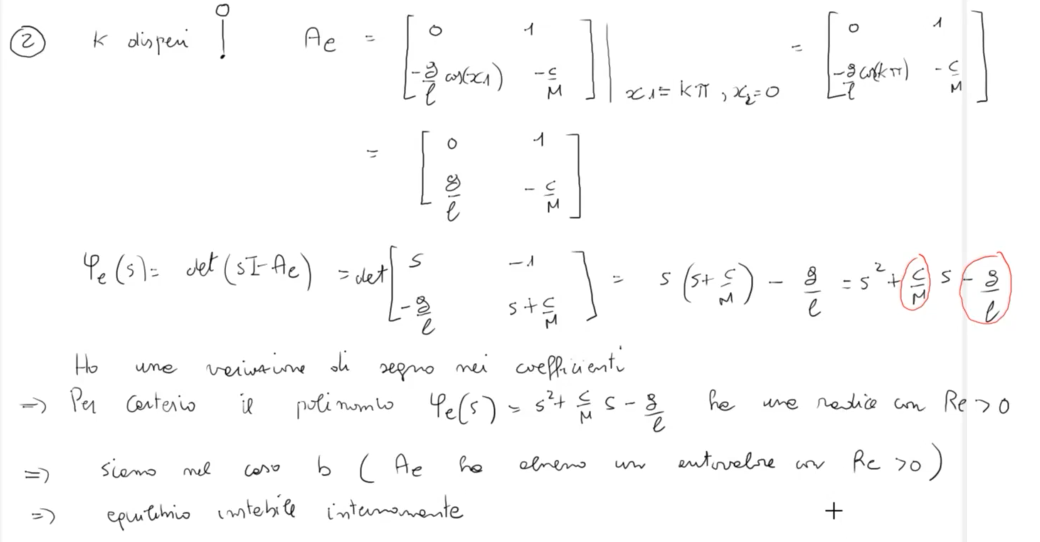 ② K dispari A_e = [ 0 1 ; -g/l cos(x1) -c/M ] | x1 = kπ, x2 = 0 = [ 0 1 ; -g/l cos(kπ) -c/M ]
= [ 0 1 ; g/l -c/M ]
φ_e(s) = det(sI-A_e) = det [ s -1 ; -g/l s+c/M ] = s(s+c/M) - g/l = s² + c/M s - g/l
Ho une variazione di segno nei coefficienti
=> Per Cartesio il polinomio φ_e(s) = s² + c/M s - g/l ha una radice con Re>0
=> siamo nel caso b (A_e ha almeno un autovalore con Re>0)
=> equilibrio instabile internamente